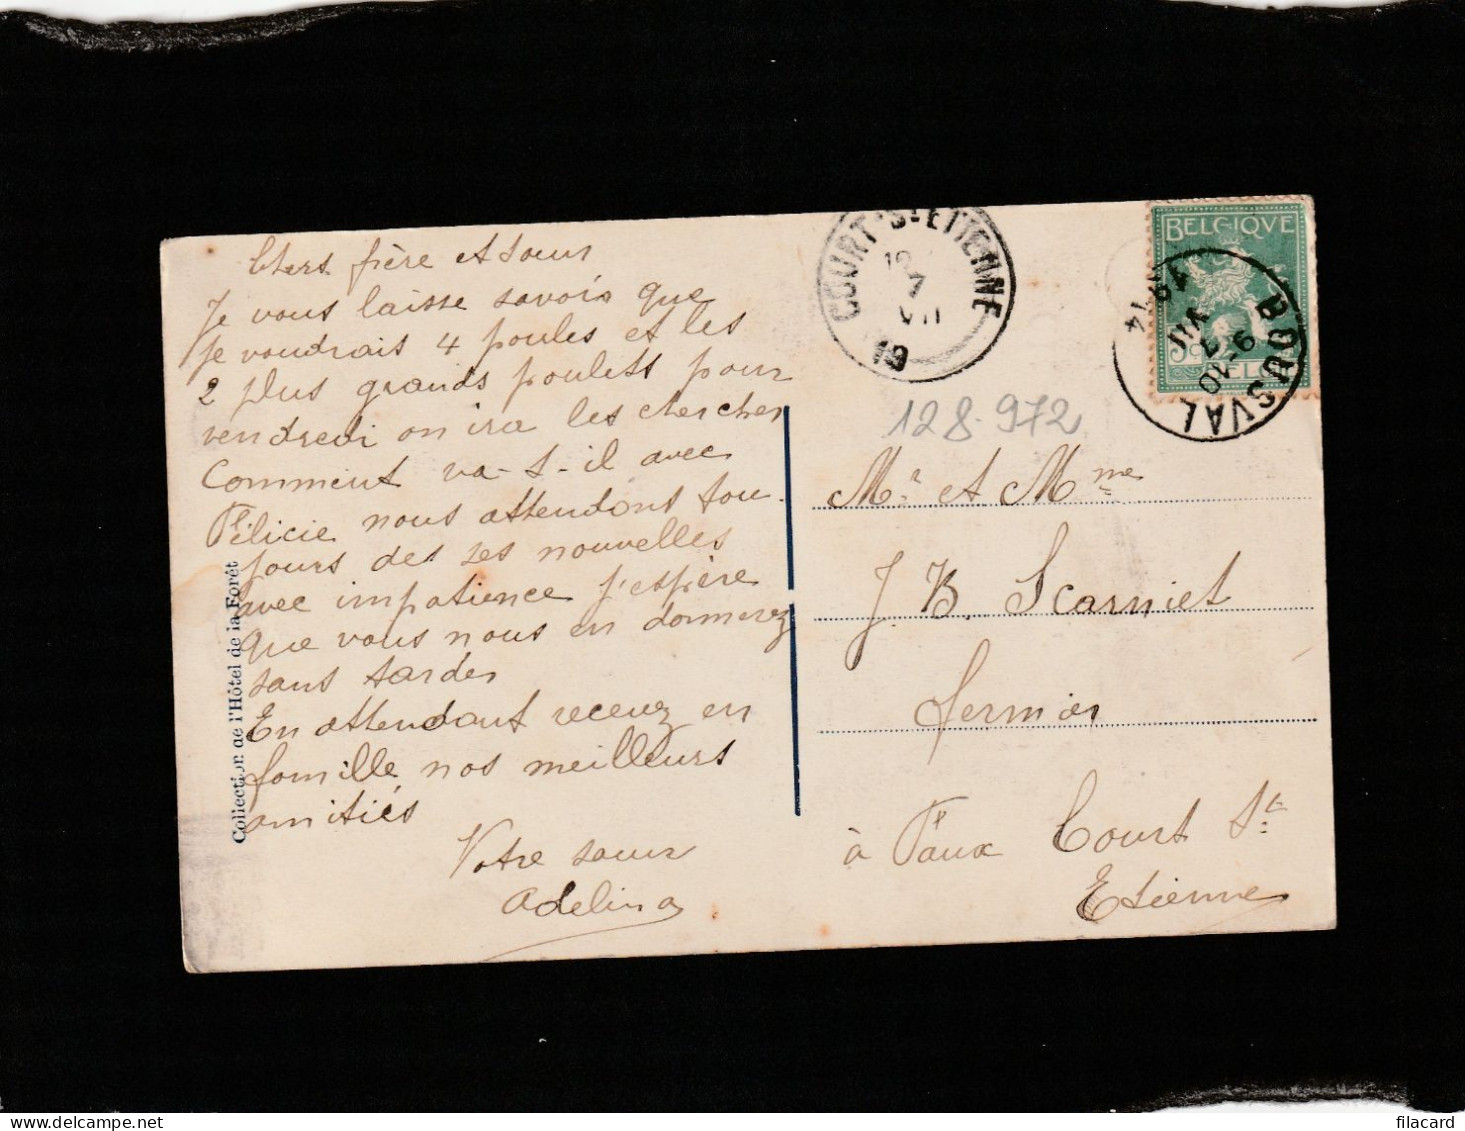 Chers frère et soeur
Je vous laisse savoir que
je voudrais 4 poules et les
2 plus grands poulets pour
vendredi on ira les chercher
Comment va-t-il avec
Félicie nous attendons tou-
jours des ses nouvelles
avec impatience j'espère
que vous nous en donnerez
sans tarder
En attendant recevez en
famille nos meilleurs
amitiés
Votre soeur
Adelina
Collection de l'Hôtel de la Forêt
COURT-St-ETIENNE
7
VII
19
BELGIQUE
BOUSVAL
9-10
7
VII
1914
128-972
Mr et Mme
J. B. Scarniet
fermier
à Faux Court St
Etienne
filacard.com